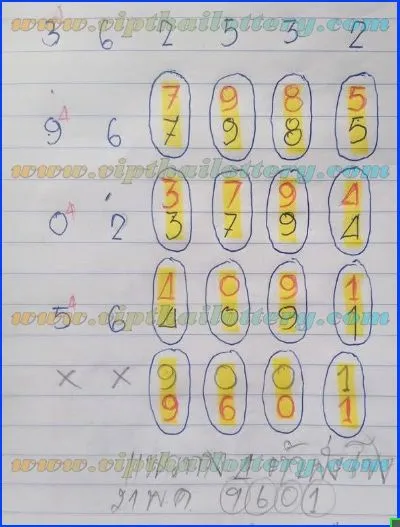 www.vipthailottery.com
3 6 2 5 3 2
4 7 9 8 5
9 6 7 9 8 5
www.vipthailottery.com
4 3 7 9 4
0 2 3 7 9 4
4 4 0 9 1
www.vipthailottery.com
5 6 4 0 9 1
x x 9 0 0 1
9 6 0 1
www.vipthailottery.com
9601